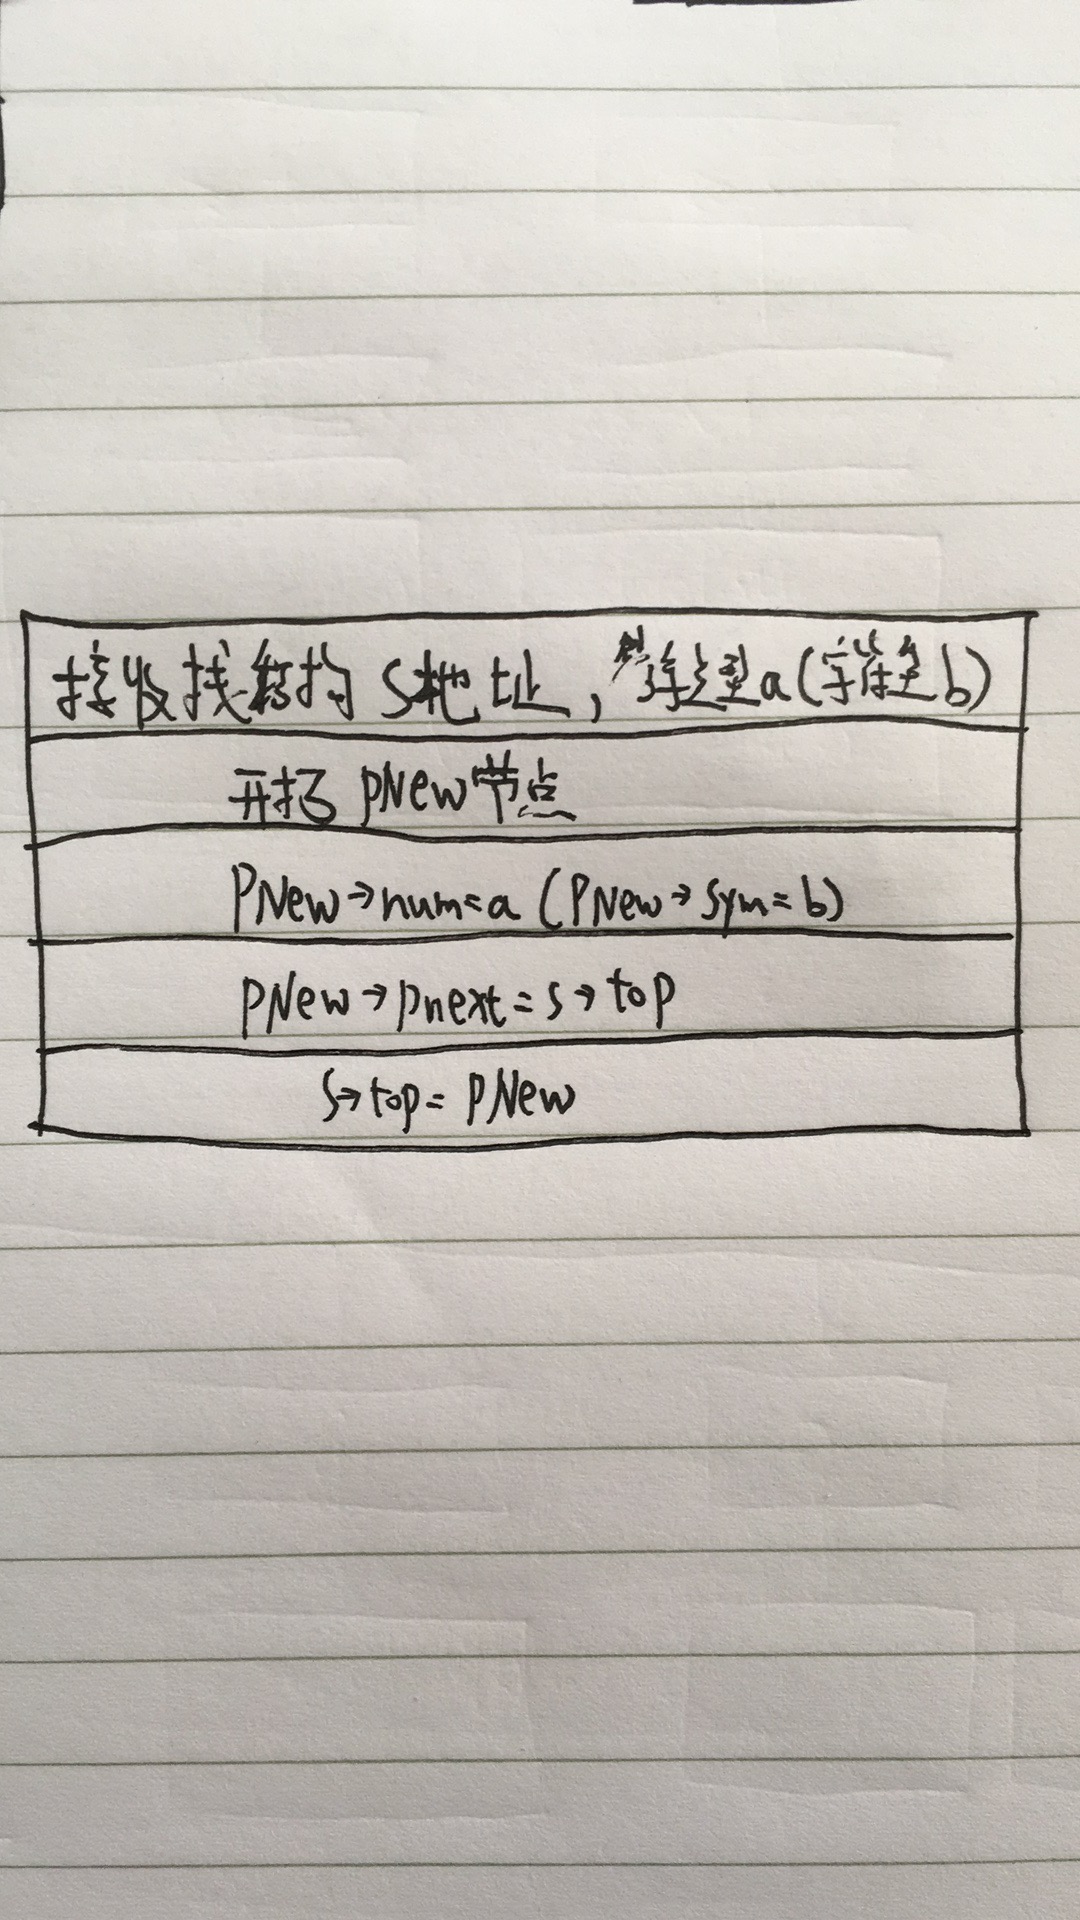 接收栈结构 S地址，单精度型a(字符型b)
开拓 pNew节点
PNew→num=a (PNew→sym=b)
pNew→pnext=s→top
s→top= pNew